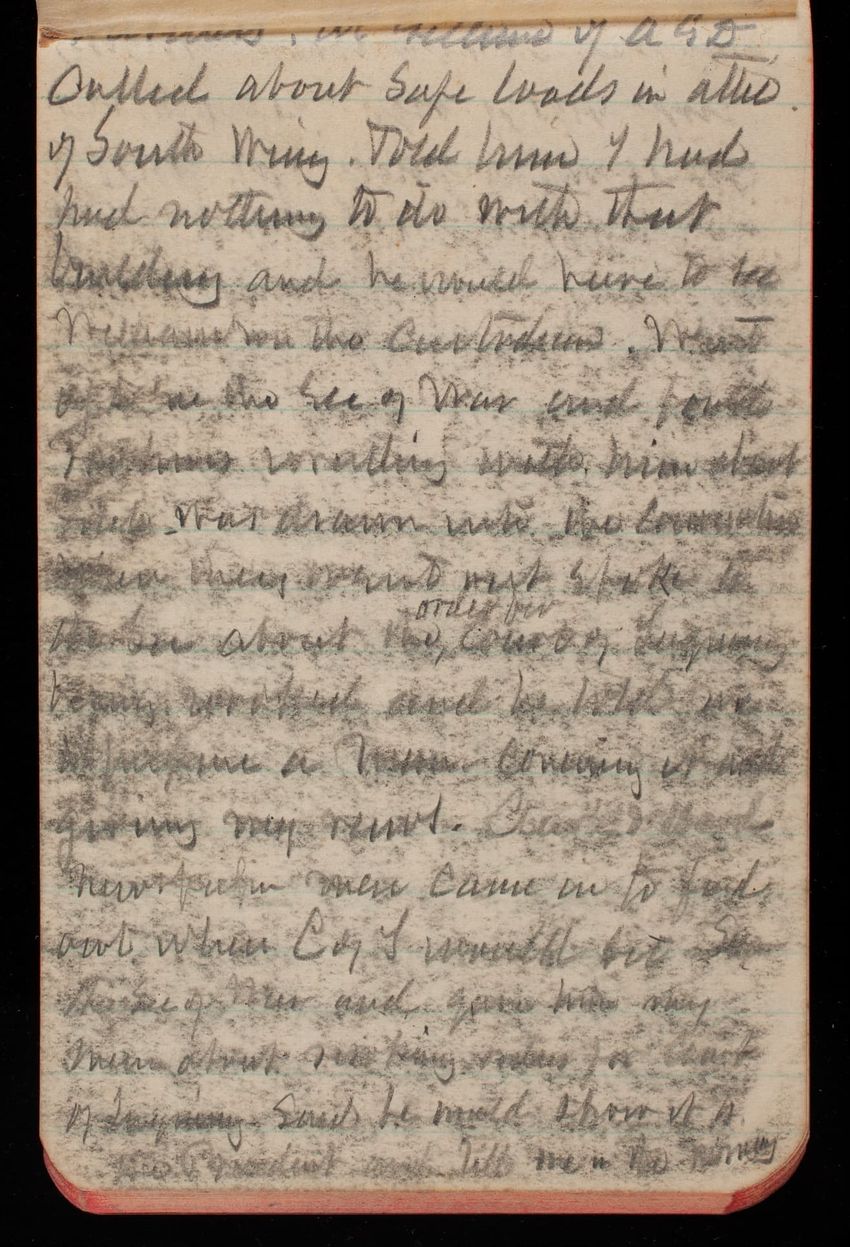 of A G D
Called about Safe loads in attic
of South Wing. Told him I had
had nothing to do with that
building and he would have to see
the Custodian. Went
the Sec of War and found
wrestling with him about
Was drawn into the
When they went out spoke to
the Sec about the order for Court of Inquiry
being revoked and he told me
to prepare a Mem covering it and
giving my views.
Newspaper men came in to find
out when C of I would be Saw
the Sec of War and gave him my
Mem about revoking order for Court
of Inquiry. Said he would show it to
the President and tell me in the morning